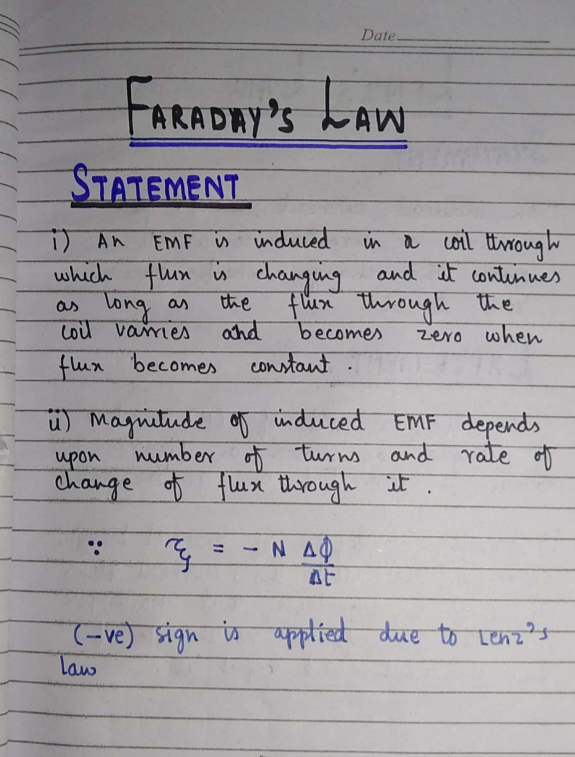 Date
FARADAY'S LAW
STATEMENT
i) An EMF is induced in a coil through
which flux is changing and it continues
as long as the flux through the
coil varries and becomes zero when
flux becomes constant.
ii) Magnitude of induced EMF depends
upon number of turns and rate of
change of flux through it.
∵ ξ = - N ΔΦ
Δt
(-ve) sign is applied due to Lenz's
Law